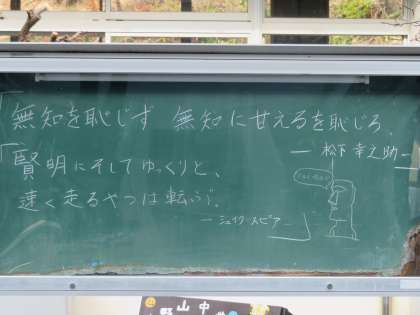 「無知を恥じず 無知に甘えるを恥じろ.
― 松下 幸之助 ―
「賢明にそしてゆっくりと、
速く走るやつは転ぶ」.
― シェイクスピア ―
山中